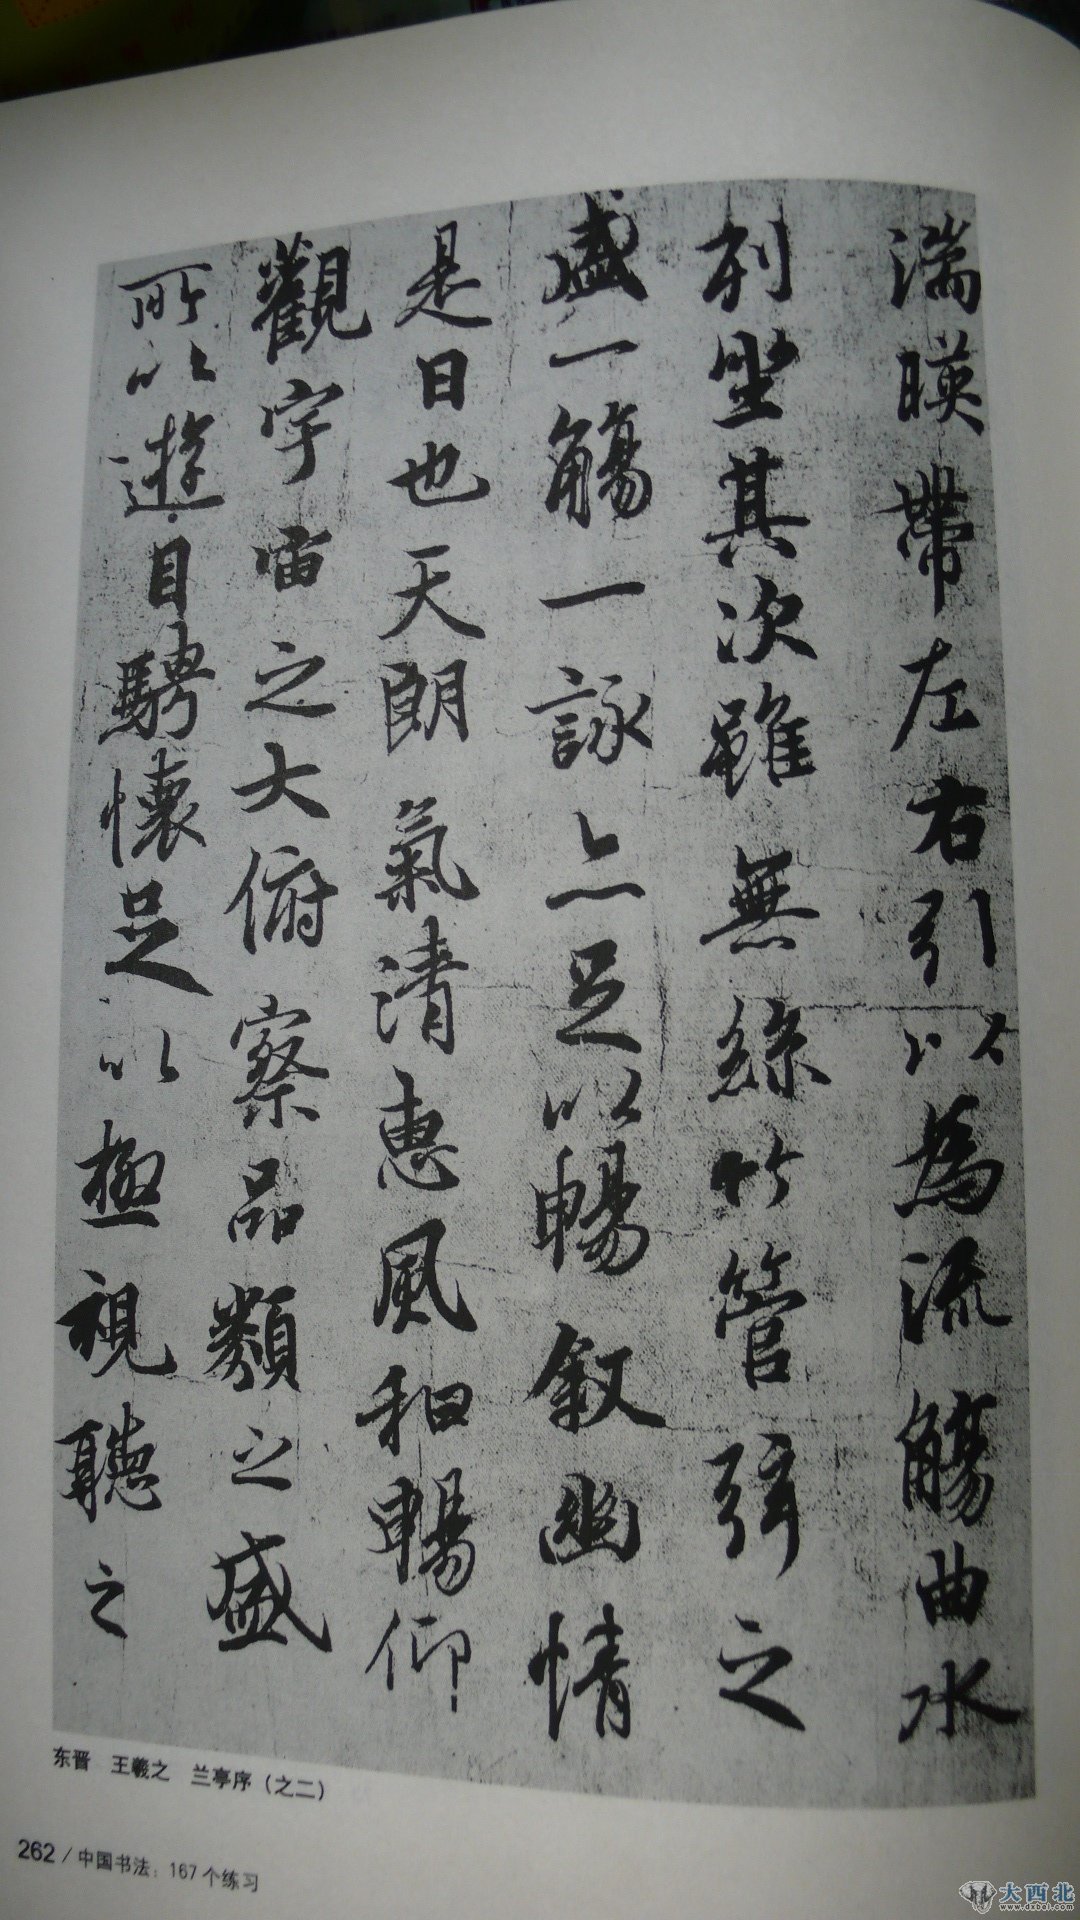 湍暎帶左右引以為流觴曲水
列坐其次雖無絲竹管弦之
盛一觴一詠亦足以暢敘幽情
是日也天朗氣清惠風和暢仰
觀宇宙之大俯察品類之盛
所以遊目騁懷足以極視聽之
东晋 王羲之 兰亭序（之二）
262 / 中国书法：167个练习
大西北
www.dxbei.com